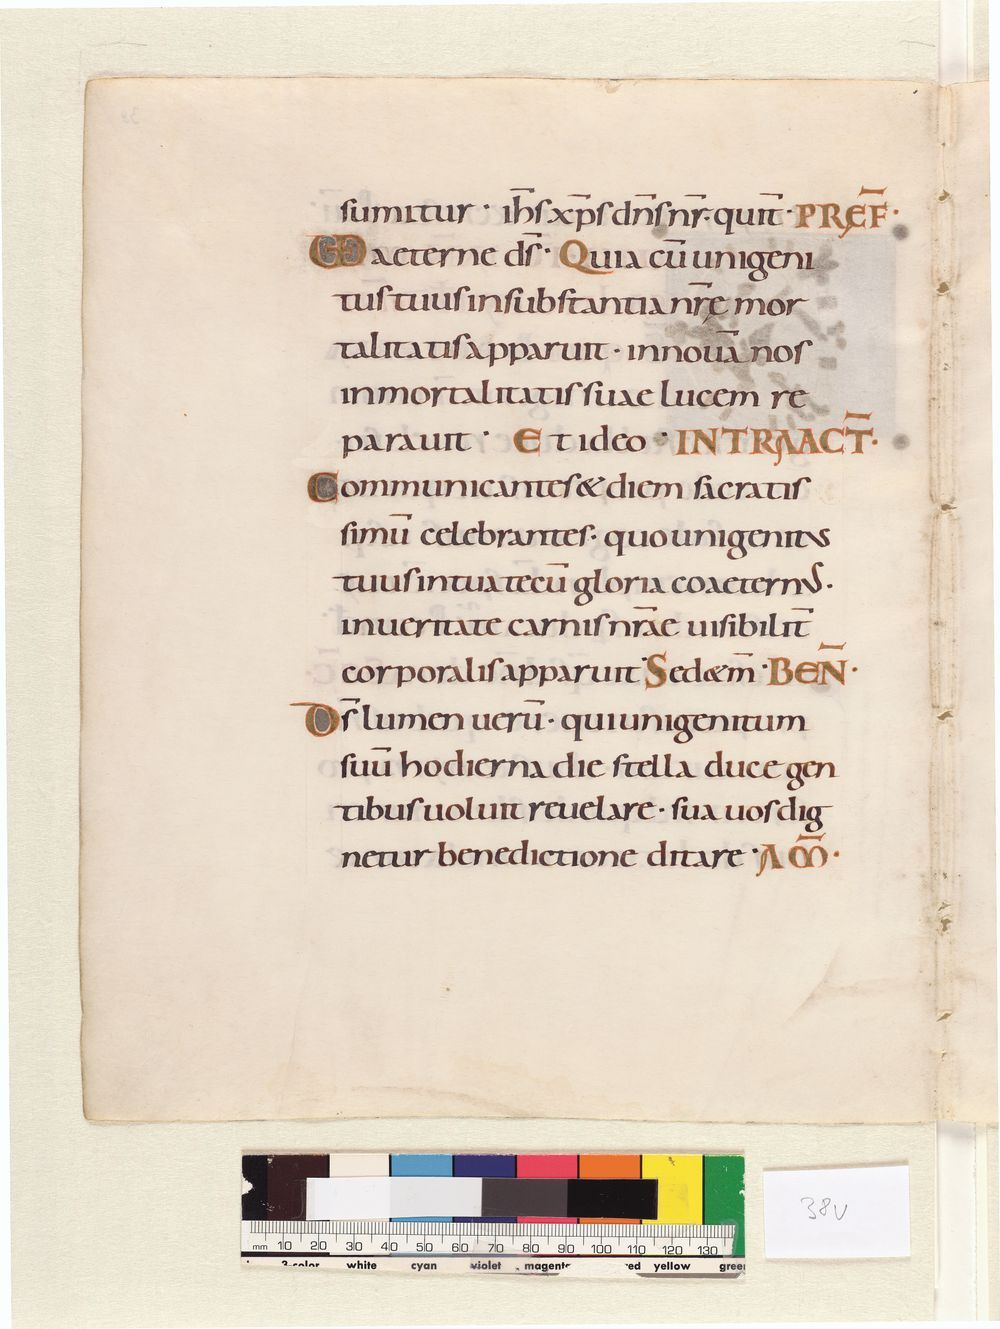 sumitur · ih̅s xp̅s dn̅s nr̅. quit̅ · PREF̅ ·
UD aeterne ds̅ · Quia cu̅ unigeni
tus tuus in substantia nr̅ę mor
talitatis apparuit · in noua̅ nos
inmortalitatis suae lucem re
parauit · Et ideo · INTRA ACT̅ ·
Communicantes & diem sacratis
simu̅ celebrantes · quo unigenitus
tuus in tua tecu̅ gloria coaeternus ·
in ueritate carnis nr̅ae uisibilit̅
corporalis apparuit · Sed&m̅ · BEN̅ ·
Ds̅ lumen ueru̅ · qui unigenitum
suu̅ hodierna die stella duce gen
tibus uoluit reuelare · sua uos dig
netur benedictione ditare · AM̅ ·
mm 10 20 30 40 50 60 70 80 90 100 110 120 130
3-color white cyan violet magenta red yellow green
38v